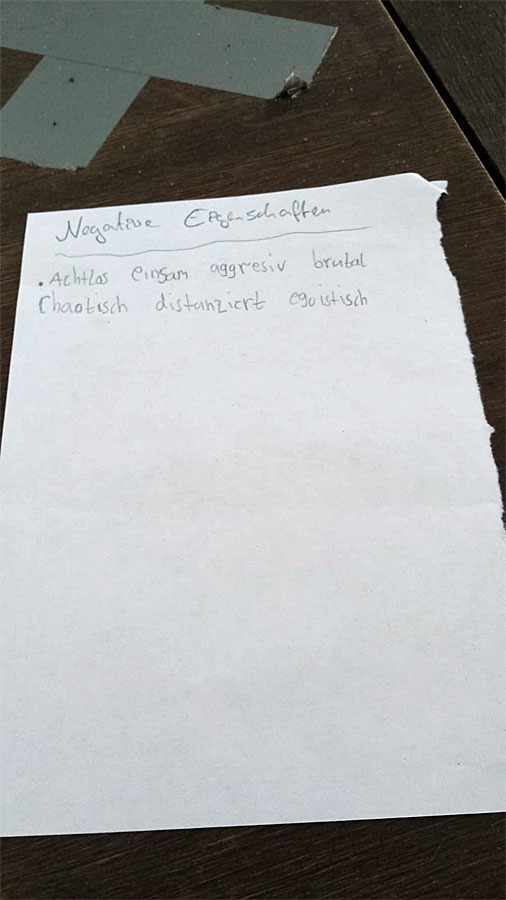 Negative Eigenschaften
• Achtlos einsam aggresiv brutal
Chaotisch distanziert egoistisch